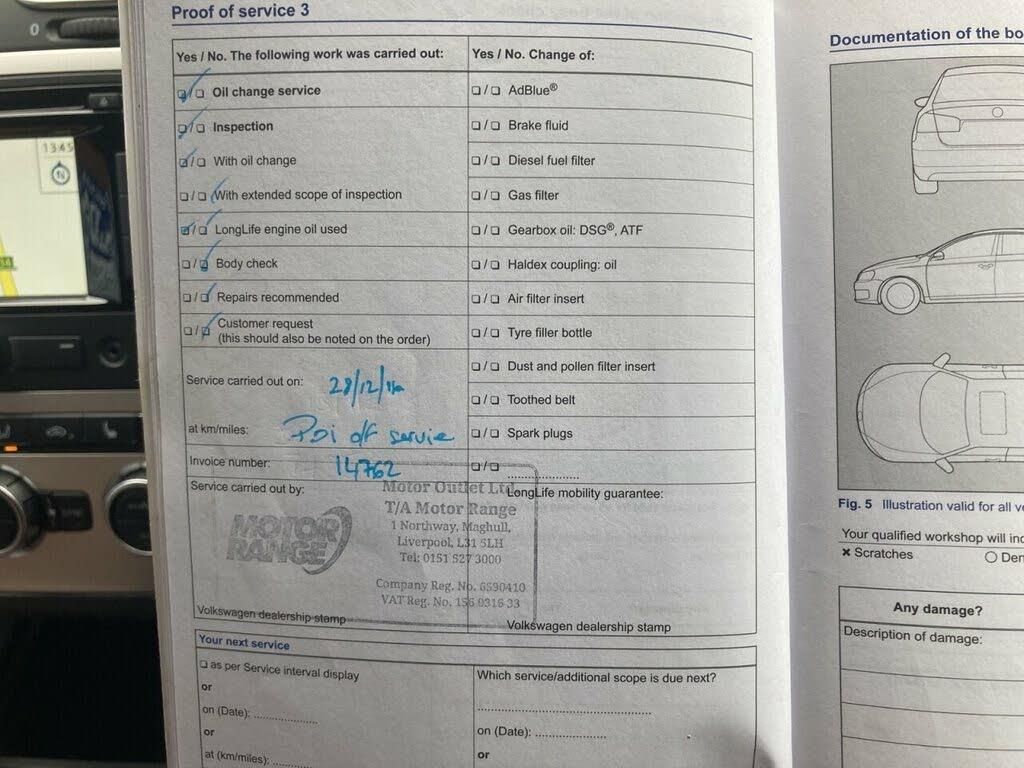 Proof of service 3
Yes / No. The following work was carried out:
☐/☐ Oil change service
☐/☐ Inspection
☐/☐ With oil change
☐/☐ With extended scope of inspection
☐/☐ LongLife engine oil used
☐/☐ Body check
☐/☐ Repairs recommended
☐/☐ Customer request
(this should also be noted on the order)
Service carried out on: 28/12/16
at km/miles: PDi off service
Invoice number: 14762
Service carried out by:
MOTOR
RANGE
Motor Outlet Ltd
T/A Motor Range
1 Northway, Maghull,
Liverpool, L31 5LH
Tel: 0151 527 3000
Company Reg. No. 6590410
VAT Reg. No. 156 0316 33
Volkswagen dealership stamp
Yes / No. Change of:
☐/☐ AdBlue®
☐/☐ Brake fluid
☐/☐ Diesel fuel filter
☐/☐ Gas filter
☐/☐ Gearbox oil: DSG®, ATF
☐/☐ Haldex coupling: oil
☐/☐ Air filter insert
☐/☐ Tyre filler bottle
☐/☐ Dust and pollen filter insert
☐/☐ Toothed belt
☐/☐ Spark plugs
☐/☐ ....................
LongLife mobility guarantee:
Volkswagen dealership stamp
Your next service
☐ as per Service interval display
or
on (Date): ..................
or
at (km/miles): ...........
Which service/additional scope is due next?
..................................................
on (Date): ....................
or
Documentation of the bo
Fig. 5 Illustration valid for all ve
Your qualified workshop will ind
✖ Scratches ○ Den
Any damage?
Description of damage:
13:45
N
0